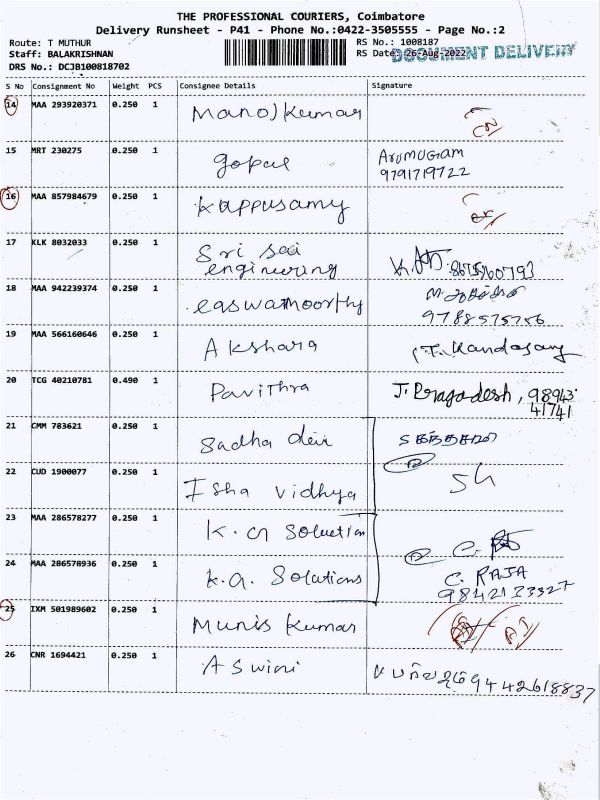 THE PROFESSIONAL COURIERS, Coimbatore
Delivery Runsheet - P41 - Phone No.:0422-3505555 - Page No.:2
Route: T MUTHUR RS No.: 1008187
Staff: BALAKRISHNAN RS Date: 26-Aug-2022 DOCUMENT DELIVERY
DRS No.: DCJB100818702
S No Consignment No Weight PCS Consignee Details Signature
14 MAA 293920371 0.250 1 Manoj Kumar
15 MRT 230275 0.250 1 gopal ArUMUGam
9791719722
16 MAA 857984679 0.250 1 Kappusamy
17 KLK 8032033 0.250 1 Sri Sai
engineering 8675760793
18 MAA 942239374 0.250 1 easwamoorthy
9788575756
19 MAA 566160646 0.250 1 Akshara
20 TCG 40210781 0.490 1 Pavithra J. Pragadesh, 98943
41741
21 CMM 783621 0.250 1 Sadha devi
22 CUD 1900077 0.250 1 Isha vidhya
23 MAA 286578277 0.250 1 K.G Solution
24 MAA 286578936 0.250 1 K.G. Solutions C. RAJA
9842133327
25 IXM 501989602 0.250 1 Munis Kumar
26 CNR 1694421 0.250 1 Aswini 9442618837